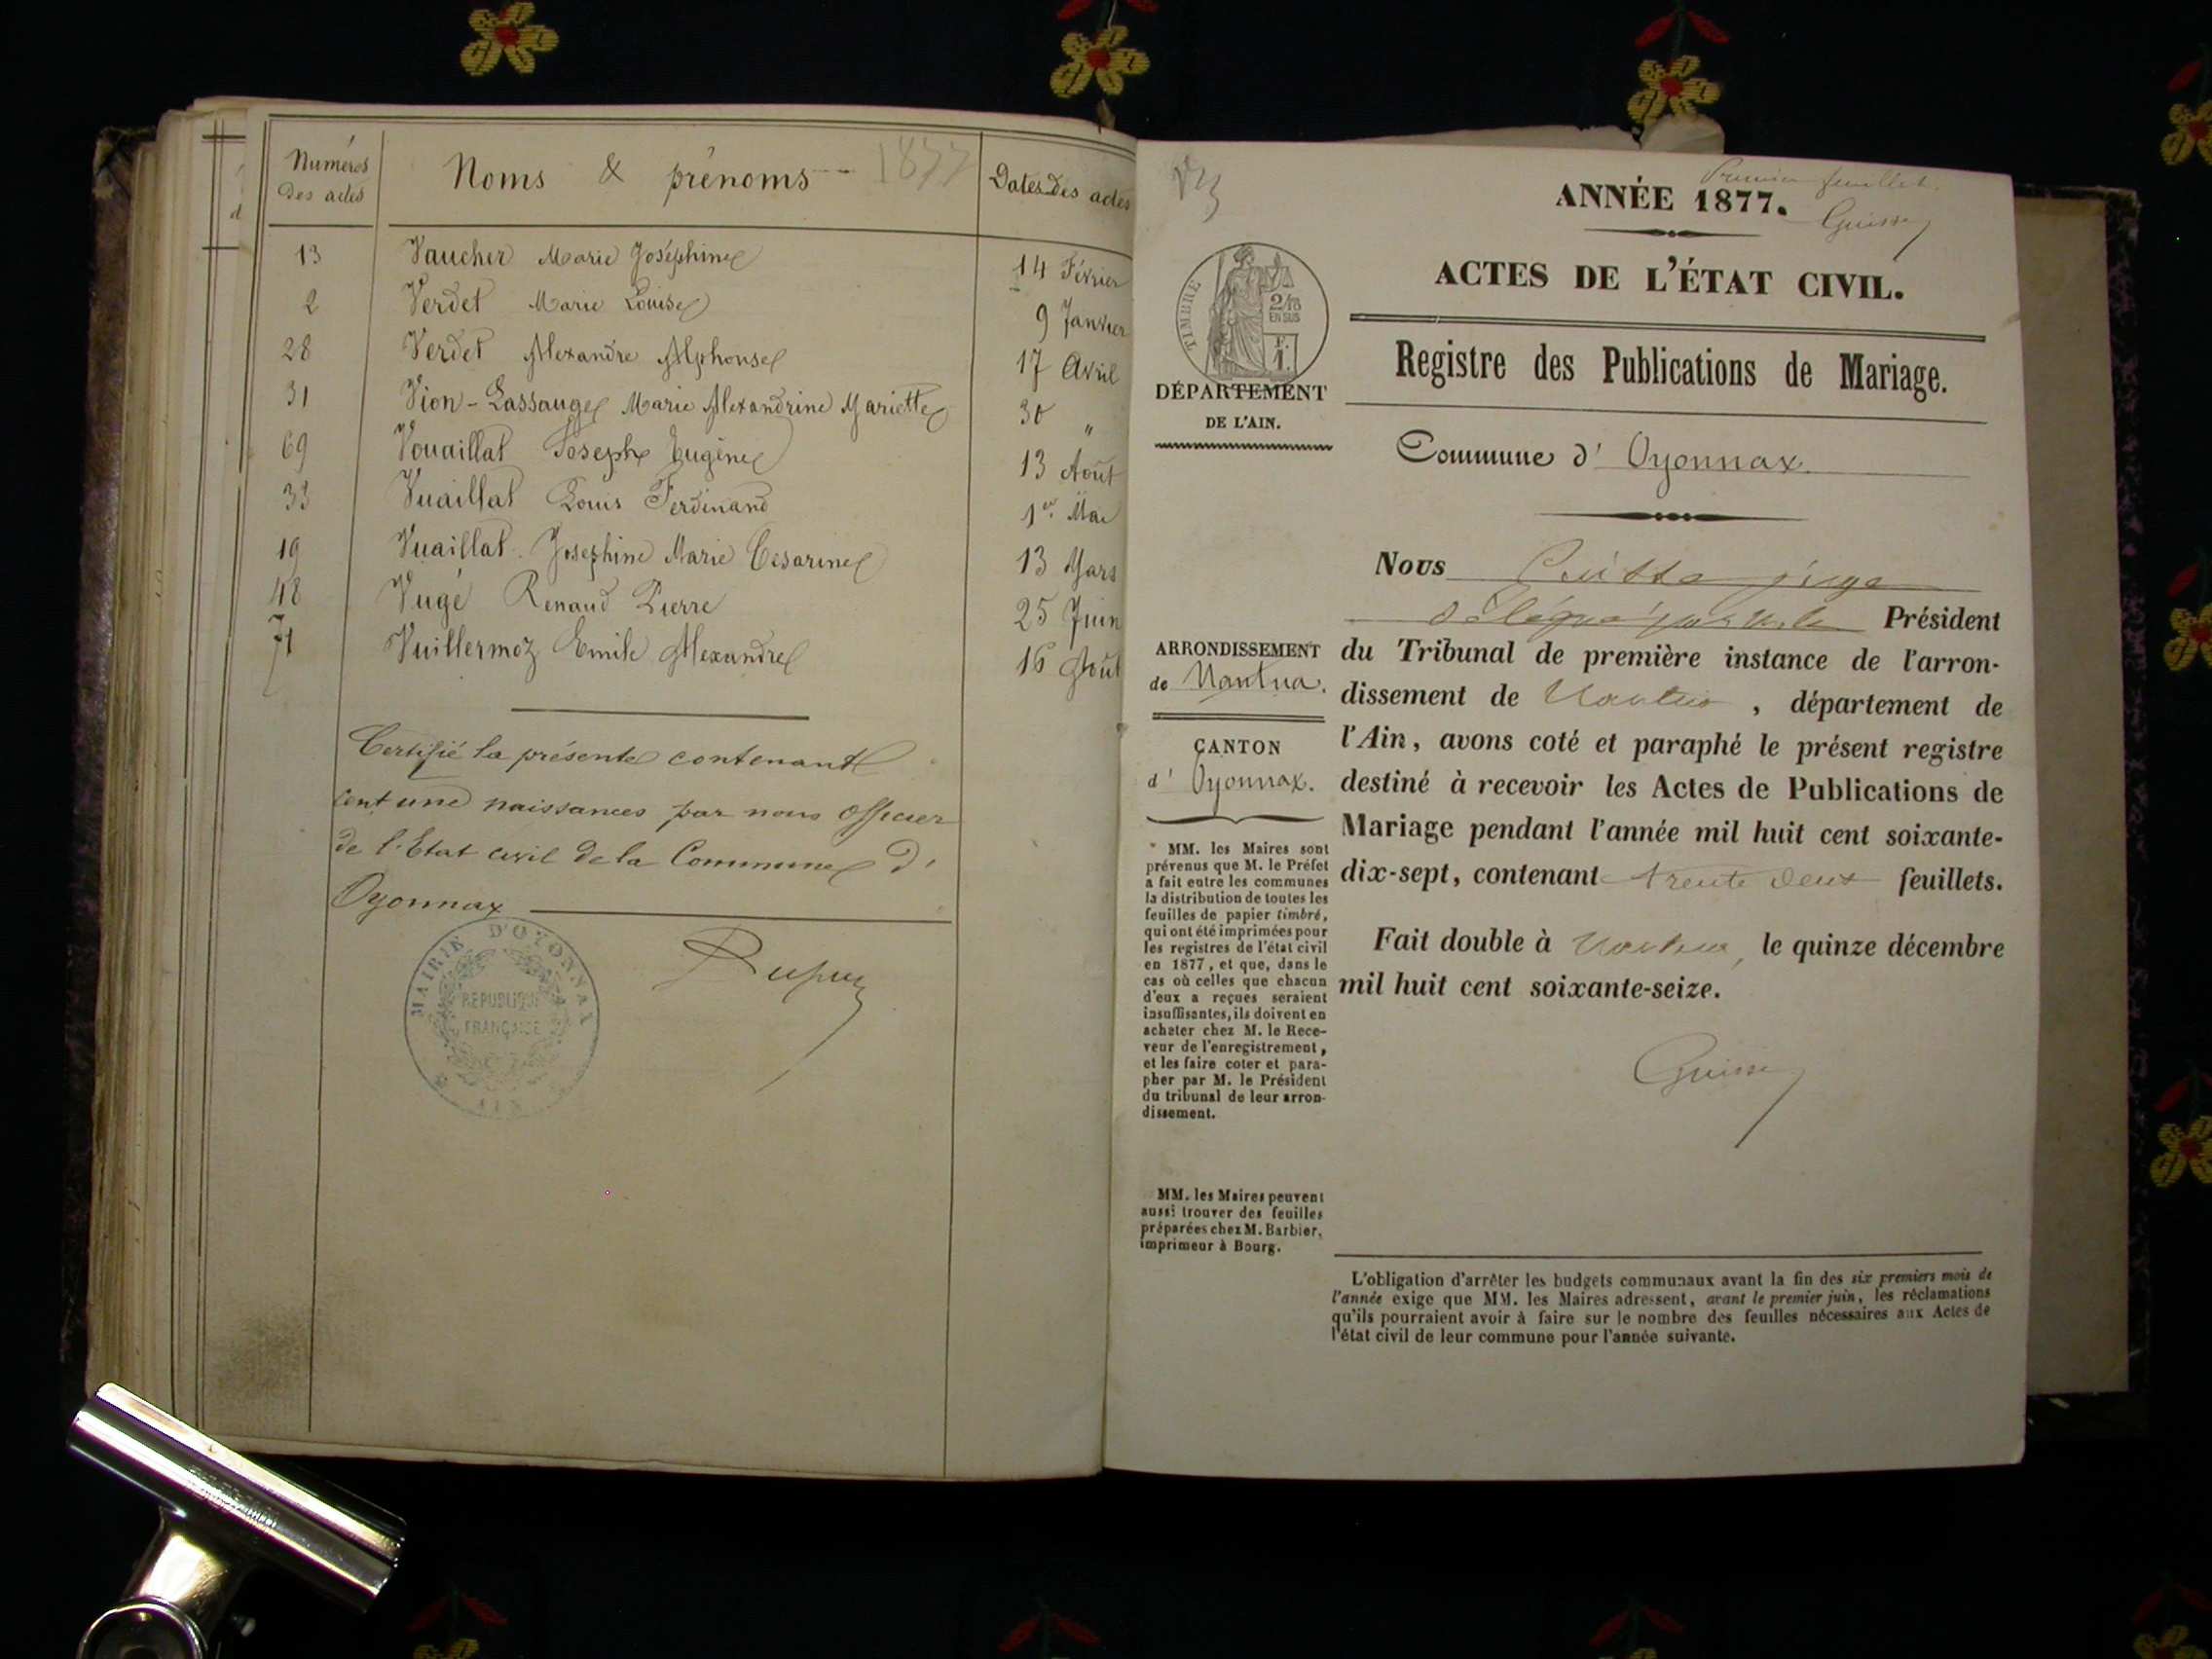 Numéros des actes
Noms & prénoms
1877
Dates des actes
13 Vaucher Marie Joséphine 14 Février
2 Verdet Marie Louise 9 Janvier
28 Verdet Alexandre Alphonse 17 Avril
31 Vion-Lassauge Marie Alexandrine Mariette 30 "
69 Vouaillat Joseph Eugène 13 Août
33 Vuaillat Louis Ferdinand 1er Mai
19 Vuaillat Joséphine Marie Césarine 13 Mars
48 Vugé Renaud Pierre 25 Juin
71 Vuillermoz Emile Alexandre 16 Août
Certifié la présente contenant
cent une naissances par nous officier
de l'Etat civil de la Commune d'
Oyonnax
MAIRIE D'OYONNAX
RÉPUBLIQUE
FRANÇAISE
AIN
Dupuy
Premier feuillet.
ANNÉE 1877.
ACTES DE L'ÉTAT CIVIL.
TIMBRE
2/10
EN SUS
F.
1.
Registre des Publications de Mariage.
DÉPARTEMENT
DE L'AIN.
Commune d' Oyonnax.
Nous juge
délégué par M. le Président
ARRONDISSEMENT
de Nantua.
du Tribunal de première instance de l'arron-
dissement de Nantua, département de
l'Ain, avons coté et paraphé le présent registre
destiné à recevoir les Actes de Publications de
Mariage pendant l'année mil huit cent soixante-
dix-sept, contenant trente deux feuillets.
Fait double à Nantua, le quinze décembre
mil huit cent soixante-seize.
CANTON
d' Oyonnax.
MM. les Maires sont
prévenus que M. le Préfet
a fait entre les communes
la distribution de toutes les
feuilles de papier timbré,
qui ont été imprimées pour
les registres de l'état civil
en 1877, et que, dans le
cas où celles que chacun
d'eux a reçues seraient
insuffisantes, ils doivent en
acheter chez M. le Rece-
veur de l'enregistrement,
et les faire coter et para-
pher par M. le Président
du tribunal de leur arron-
dissement.
MM. les Maires peuvent
aussi trouver des feuilles
préparées chez M. Barbier,
imprimeur à Bourg.
L'obligation d'arrêter les budgets communaux avant la fin des six premiers mois de
l'année exige que MM. les Maires adressent, avant le premier juin, les réclamations
qu'ils pourraient avoir à faire sur le nombre des feuilles nécessaires aux Actes de
l'état civil de leur commune pour l'année suivante.